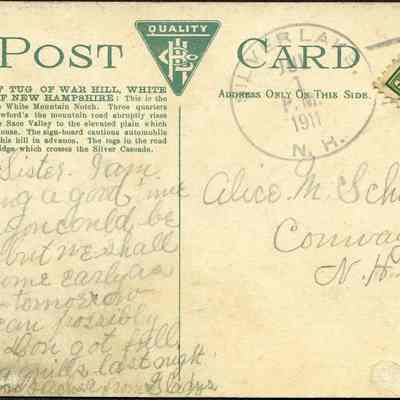 POST CARD
QUALITY
F TUG OF WAR HILL, WHITE
F NEW HAMPSHIRE: This is the
White Mountain Notch. Three quarters
wford's the mountain road abruptly rises
Saco Valley to the elevated plain which
ouse. The sign-board cautions automobile
his hill in advance. The togs in the road
idge which crosses the Silver Cascade.
ADDRESS ONLY ON THIS SIDE.
SILVER LAKE
1
P.M.
1911
N. H.
Sister. I am
a good
be
but we shall
home early
tomorrow
can possibly
Don got
last night.
from Gladys
Alice M. Sch
Conway
N.H.